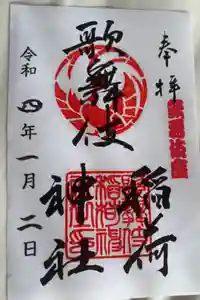 奉拝
歌舞伎
稲荷
神社
令和四年一月二日